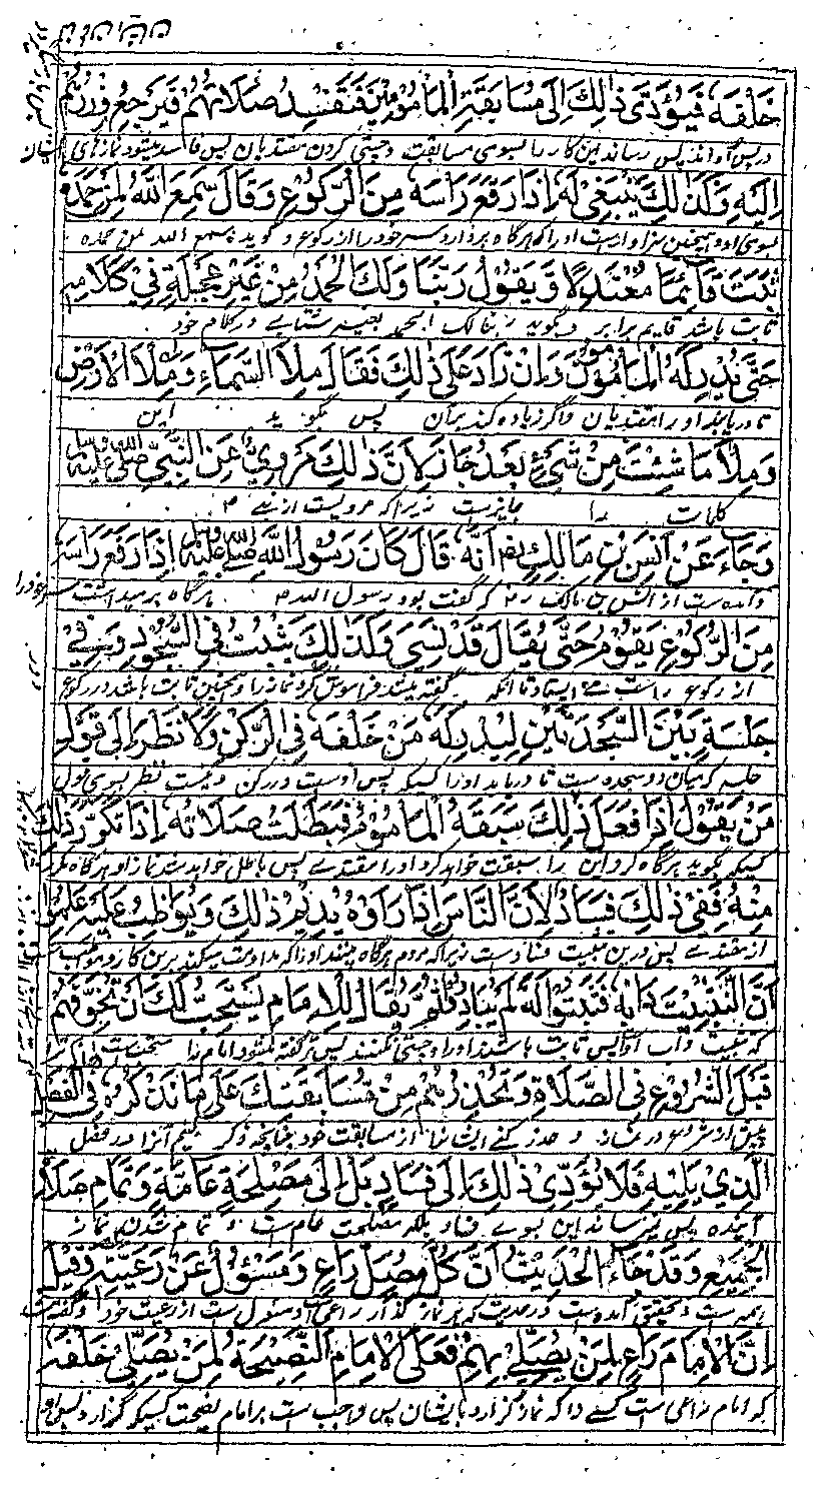 خَلْفَهُ فَيُؤَدِّي ذٰلِكَ اِلَى مُسَابَقَةِ الْمَأْمُومِينَ فَتَفْسُدُ صَلَاتُهُمْ فَيَرْجِعُ وِزْرُهُمْ
در پس او اند پس رساند این کار را بسوی مسابقت و پیشی کردن مقتدیان پس فاسد میشود نمازهای ایشان
اِلَيْهِ وَكَذٰلِكَ يَنْبَغِي لَهُ اِذَا رَفَعَ رَأْسَهُ مِنَ الرُّكُوعِ وَقَالَ سَمِعَ اللّٰهُ لِمَنْ حَمِدَهُ
بسوی او و همچنین سزاوارست او را که هرگاه بردارد سر خود را از رکوع و گوید سمع الله لمن حمده
ثَبَتَ قَائِمًا مُعْتَدِلًا وَيَقُولُ رَبَّنَا وَلَكَ الْحَمْدُ مِنْ غَيْرِ عَجَلَةٍ فِي كَلَامِهِ
ثابت باشد قایم برابر و بگوید ربنا لک الحمد بغیر شتابی در کلام خود
حَتّٰى يُدْرِكَهُ الْمَأْمُومُونَ وَاِنْ زَادَ عَلَى ذٰلِكَ فَقَالَ مِلْأَ السَّمَاءِ وَمِلْأَ الْاَرْضِ
تا دریابند او را مقتدیان و اگر زیاده کند بر آن پس بگوید این
وَمِلْأَ مَا شِئْتَ مِنْ شَيْءٍ بَعْدُ جَازَ لِاَنَّ ذٰلِكَ مَرْوِيٌّ عَنِ النَّبِيِّ صلى الله عليه وسلم
کلمات را جایزست زیرا که مرویست از نبی ص
وَجَاءَ عَنْ اَنَسِ بْنِ مَالِكٍ رض اَنَّهُ قَالَ كَانَ رَسُولُ اللّٰهِ صلى الله عليه وسلم اِذَا رَفَعَ رَأْسَهُ
و آمده است از انس بن مالک رض که گفت بود رسول الله ص هرگاه برمیداشت سر خود را
مِنَ الرُّكُوعِ يَقُومُ حَتّٰى يُقَالَ قَدْ نَسِيَ وَكَذٰلِكَ يَثْبُتُ فِي السُّجُودِ وَفِي
از رکوع راست می ایستاد تا آنکه گفته میشد فراموش کرد نماز را و همچنین ثابت باشد در رکوع
جَلْسَةٍ بَيْنَ السَّجْدَتَيْنِ لِيُدْرِكَهُ مَنْ خَلْفَهُ فِي الرُّكْنِ وَلَا نَظَرَ اِلَى قَوْلِ
جلسه که میان دو سجده ست تا دریابد او را کسیکه پس اوست در رکن و نیست نظر بسوی قول
مَنْ يَقُولُ اِذَا فَعَلَ ذٰلِكَ سَبَقَهُ الْمَأْمُومُ فَبَطَلَتْ صَلَاتُهُ اِذَا تَكَرَّرَ ذٰلِكَ
کسیکه بگوید هرگاه کرد این را سبقت خواهد کرد او را مقتدی پس باطل خواهد شد نماز او هرگاه مکرر
مِنْهُ فَفِي ذٰلِكَ فَسَادٌ لِاَنَّ النَّاسَ اِذَا رَاَوْهُ يُدِيمُ ذٰلِكَ وَيُوَاظِبُ عَلَيْهِ عَلِمُوا
از مقتدی پس درین فسادست زیرا که مردم هرگاه بینند او را که مداومت میکند برین کار و
اَنَّ التَّثَبُّتَ دَابُهُ فَثَبَتُوا لَهُ لَمْ يُبَادِرُوا ثُمَّ يُقَالُ لِلْاِمَامِ يَسْتَحِبُّ لَكَ اَنْ تُخَوِّفَهُمْ
که داب اوست پس ثابت باشند او را و پیشی نکنند پس گفته میشود امام را مستحب است
قَبْلَ الشُّرُوعِ فِي الصَّلَاةِ وَتُحَذِّرَهُمْ مِنْ مُسَابَقَتِكَ عَلَى مَا نَذْكُرُهُ فِي الْفَصْلِ
پیش از شروع در نماز و حذر کنی ایشانرا از مسابقت خود چنانچه ذکر کنیم آنرا در فصل
الَّذِي يَلِيهِ فَلَا يُؤَدِّي ذٰلِكَ اِلَى فَسَادٍ بَلْ اِلَى مَصْلِحَةٍ عَامَّةٍ وَتَمَامِ صَلَاةِ
آینده پس نمیرساند این بسوی فساد بلکه مصلحت عام است و تمام شدن نماز
الْجَمِيعِ وَقَدْ جَاءَ الْحَدِيثُ اَنَّ كُلَّ مُصَلٍّ رَاعٍ وَمَسْؤُلٌ عَنْ رَعِيَّتِهِ وَقِيلَ
همه ست و بتحقیق آمده ست در حدیث که هر نماز گذار راعی ست و مسئول ست از رعیت خود و گفته شد
اِنَّ الْاِمَامَ رَاعٍ لِمَنْ يُصَلِّي بِهِمْ فَعَلَى الْاِمَامِ النَّصِيحَةُ لِمَنْ يُصَلِّي خَلْفَهُ
که امام راعی است کسی را که نماز گزارد بایشان پس واجب است بر امام نصیحت کسیکه گزارد پس او